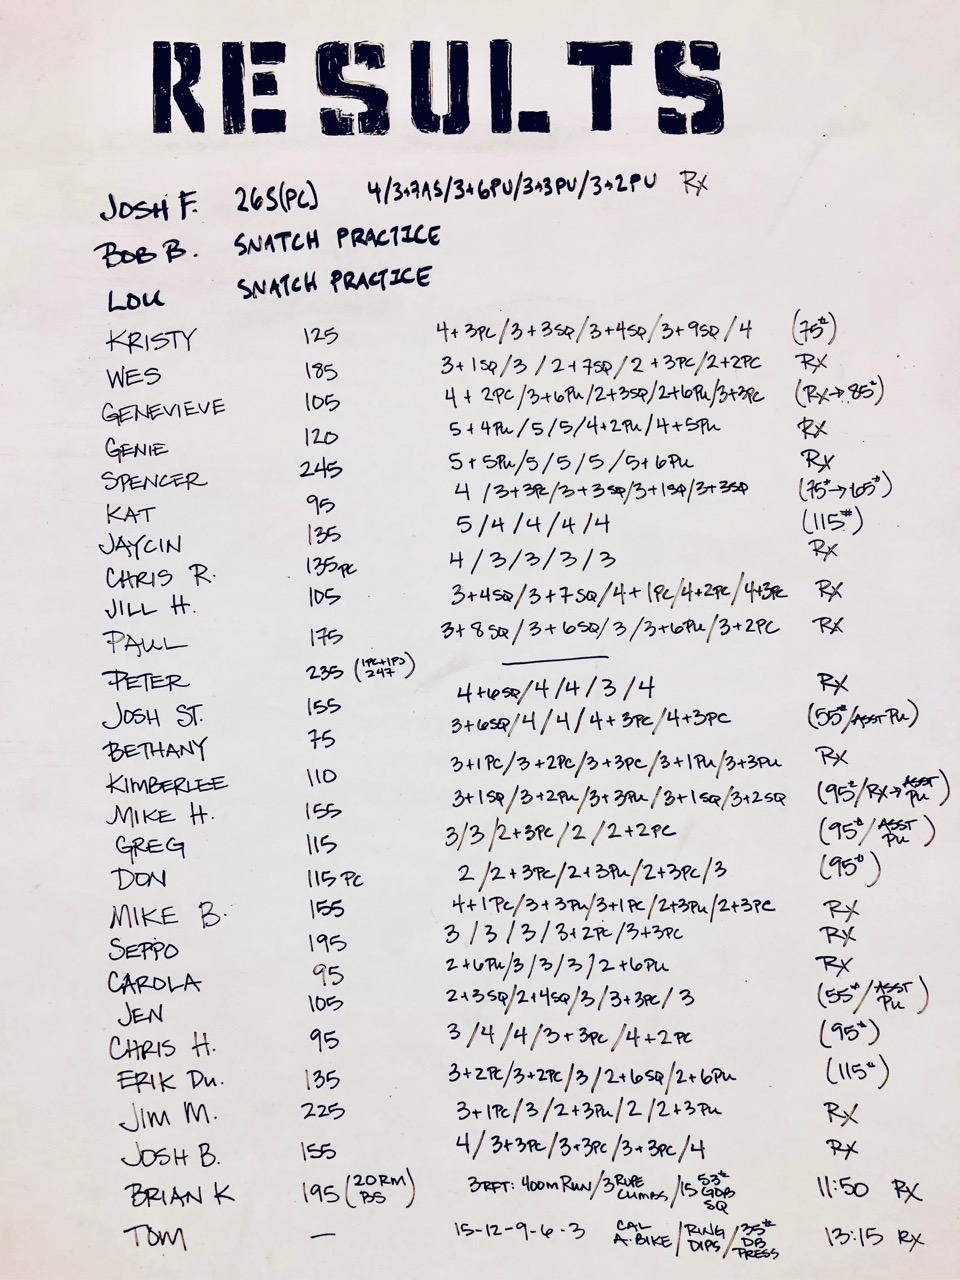 RESULTS
JOSH F. 265(PC) 4/3+7AS/3+6PU/3+3PU/3+2PU RX
BOB B. SNATCH PRACTICE
LOU SNATCH PRACTICE
KRISTY 125 4+3PC/3+3SQ/3+4SQ/3+9SQ/4 (75#)
WES 185 3+1SQ/3/2+7SQ/2+3PC/2+2PC RX
GENEVIEVE 105 4+2PC/3+6PU/2+3SQ/2+6PU/3+3PC (RX→85#)
GENIE 120 5+4PU/5/5/4+2PU/4+5PU RX
SPENCER 245 5+5PU/5/5/5/5+6PU RX
KAT 95 4/3+3PC/3+3SQ/3+1SQ/3+3SQ (75#→65#)
JAYCIN 135 5/4/4/4/4 (115#)
CHRIS R. 135PC 4/3/3/3/3 RX
JILL H. 105 3+4SQ/3+7SQ/4+1PC/4+2PC/4+3PC RX
PAUL 175 3+8SQ/3+6SQ/3/3+6PU/3+2PC RX
PETER 235 (1PC+1PJ 247) —
JOSH ST. 155 4+6SQ/4/4/3/4 RX
BETHANY 75 3+6SQ/4/4/4+3PC/4+3PC (55#/ASST PU)
KIMBERLEE 110 3+1PC/3+2PC/3+3PC/3+1PU/3+3PU RX
MIKE H. 155 3+1SQ/3+2PU/3+3PU/3+1SQ/3+2SQ (95#/RX→ASST PU)
GREG 115 3/3/2+3PC/2/2+2PC (95#/ASST PU)
DON 115 PC 2/2+3PC/2+3PU/2+3PC/3 (95#)
MIKE B. 155 4+1PC/3+3PU/3+1PC/2+3PU/2+3PC RX
SEPPO 195 3/3/3/3+2PC/3+3PC RX
CAROLA 95 2+6PU/3/3/3/2+6PU RX
JEN 105 2+3SQ/2+4SQ/3/3+3PC/3 (55#/ASST PU)
CHRIS H. 95 3/4/4/3+3PC/4+2PC (95#)
ERIK DU. 135 3+2PC/3+2PC/3/2+6SQ/2+6PU (115#)
JIM M. 225 3+1PC/3/2+3PU/2/2+3PU RX
JOSH B. 155 4/3+3PC/3+3PC/3+3PC/4 RX
BRIAN K 195 (20RM BS) 3RFT: 400M RUN/3 ROPE CLIMBS/15 53# GOB SQ 11:50 RX
TOM — 15-12-9-6-3 CAL A.BIKE/RING DIPS/35# DB PRESS 13:15 RX